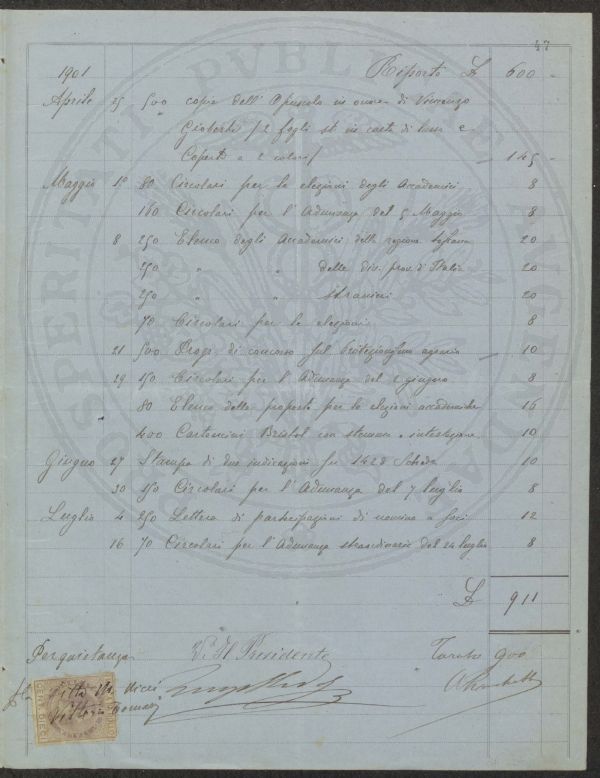 47
1901 Riporto £ 600 -
Aprile 25 500 copie dell'Opuscolo in onore di Vincenzo
Gioberti (2 fogli st in carta di lusso e
Coperta a 2 colori) 145 -
Maggio 1° 80 Circolari per le elezioni degli Accademici 8
160 Circolari per l'Adunanza del 5 Maggio 8
8 250 Elenco degli Accademici della regione toscana 20
250 " " delle div. prov. d'Italia 20
250 " " stranieri 20
70 Circolari per le elezioni 8
21 500 di concorso sul Protezionismo agrario 10
29 150 Circolari per l'Adunanza del 2 giugno 8
80 Elenco delle proposte per le elezioni accademiche 16
400 Cartoncini Bristol con stemma e intestazione 10
Giugno 27 Stampa di due indicazioni su 1428 Schede 10
30 150 Circolari per l'Adunanza del 7 luglio 8
Luglio 4 250 Lettere di partecipazioni di nomina a Soci 12
16 70 Circolari per l'Adunanza straordinaria del 24 luglio 8
£ 911
Per quietanza V. Il Presidente 900
Ditta Ricci
Vittorio
CENT. DIECI
PROSPERITATI PVBLICAE AVGENDAE